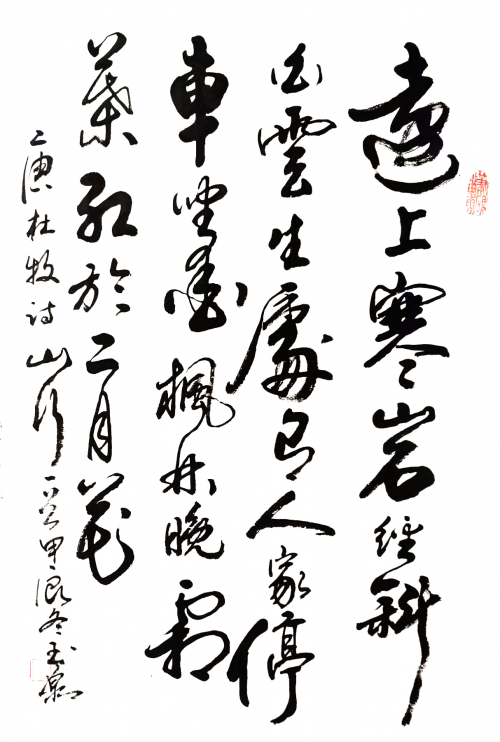 遠上寒山石徑斜
白雲生處有人家停
車坐愛楓林晚霜
葉紅於二月花
唐杜牧詩山行 甲辰冬玉泉